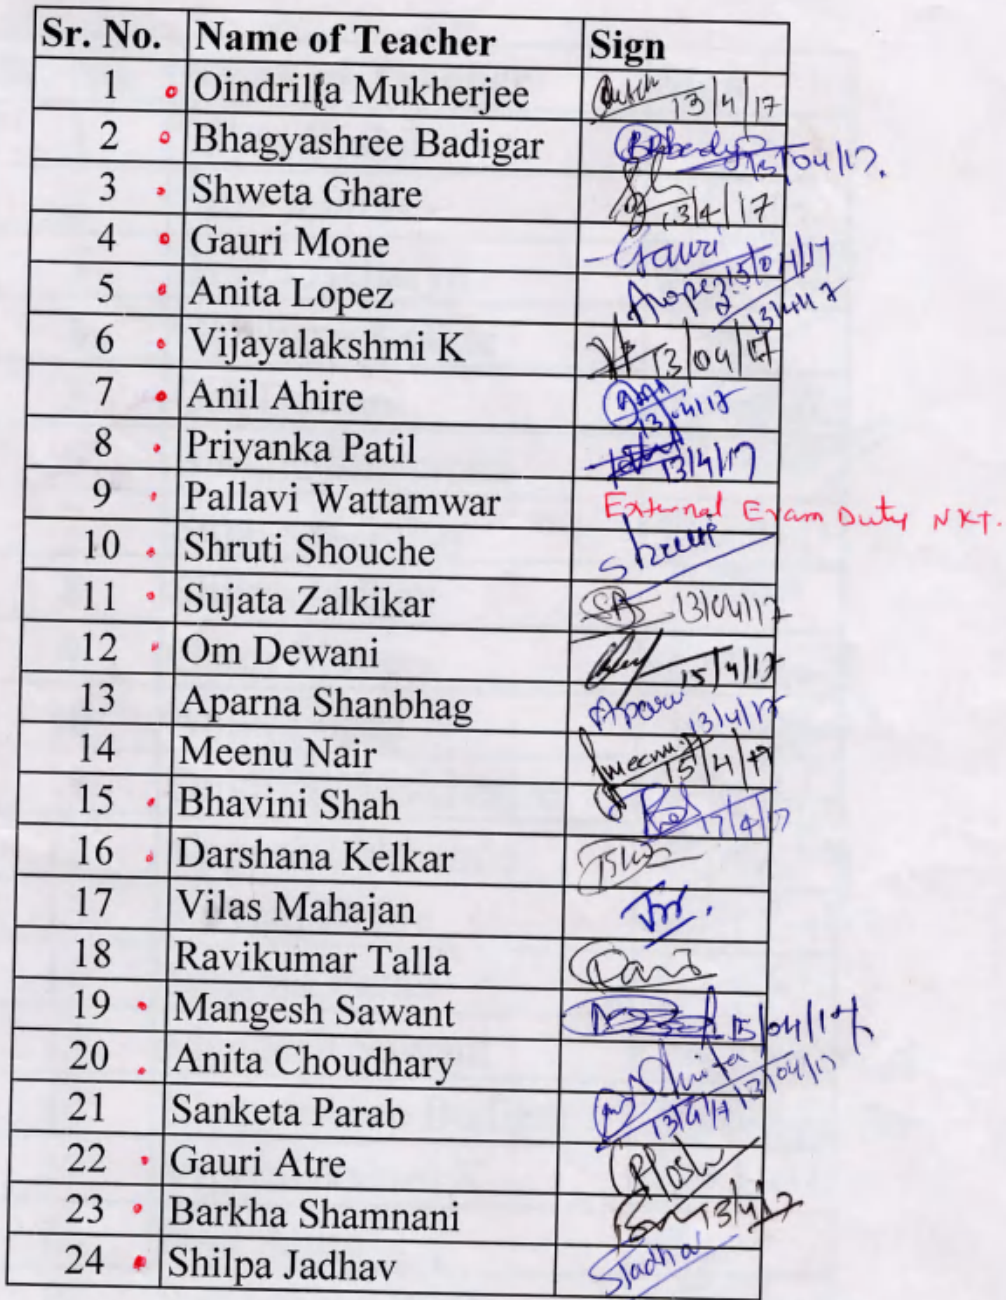 Sr. No. Name of Teacher Sign
1 Oindrilla Mukherjee 13/4/17
2 Bhagyashree Badigar 15/04/17.
3 Shweta Ghare 13/4/17
4 Gauri Mone Gauri 15/04/17
5 Anita Lopez ALopez 13/4/17
6 Vijayalakshmi K 13/04/17
7 Anil Ahire 13/04/17
8 Priyanka Patil 13/4/17
9 Pallavi Wattamwar External Exam Duty NKT.
10 Shruti Shouche Shruti
11 Sujata Zalkikar 13/04/17
12 Om Dewani 15/4/17
13 Aparna Shanbhag 13/4/17
14 Meenu Nair Meenu 15/4/17
15 Bhavini Shah 17/4/17
16 Darshana Kelkar
17 Vilas Mahajan
18 Ravikumar Talla Ravi
19 Mangesh Sawant 15/04/17
20 Anita Choudhary Anita 13/04/17
21 Sanketa Parab 13/4/17
22 Gauri Atre
23 Barkha Shamnani 13/4/17
24 Shilpa Jadhav SJadhav